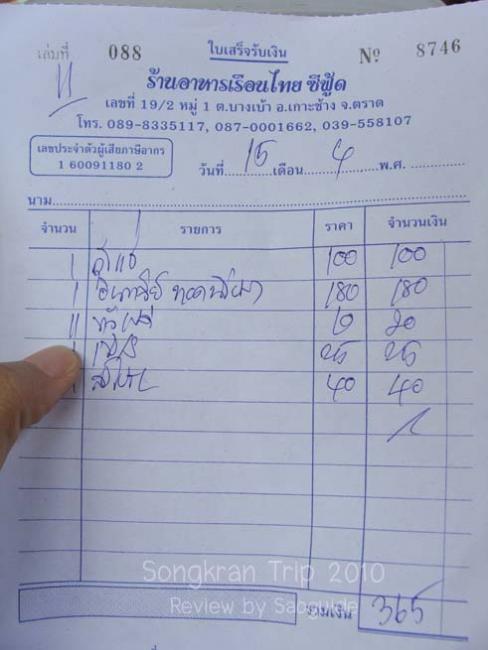 เล่มที่ 088 ใบเสร็จรับเงิน Nº 8746
11
ร้านอาหารเรือนไทย ซีฟู้ด
เลขที่ 19/2 หมู่ 1 ต.บางเบ้า อ.เกาะช้าง จ.ตราด
โทร. 089-8335117, 087-0001662, 039-558107
เลขประจำตัวผู้เสียภาษีอากร
1 60091180 2
วันที่ 15 เดือน 4 พ.ศ.
นาม
จำนวน รายการ ราคา จำนวนเงิน
1 100 100
1 180 180
11 20
25 25
40 40
รวมเงิน 365
Songkran Trip 2010
Review by Saoguide